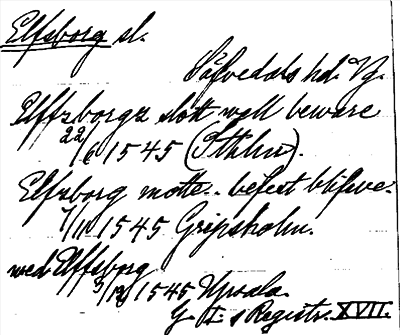 Elfsborg sl.
Säfvedals hd. Vg.
Elffzborgz slott well beware
22/6 1545 (Sthlm).
Elfzborg motte.. befest blifwe.
7/11 1545 Gripsholm.
wed Elffsborg
3/12 1545 Upsala.
G. I:s Registr. XVII.